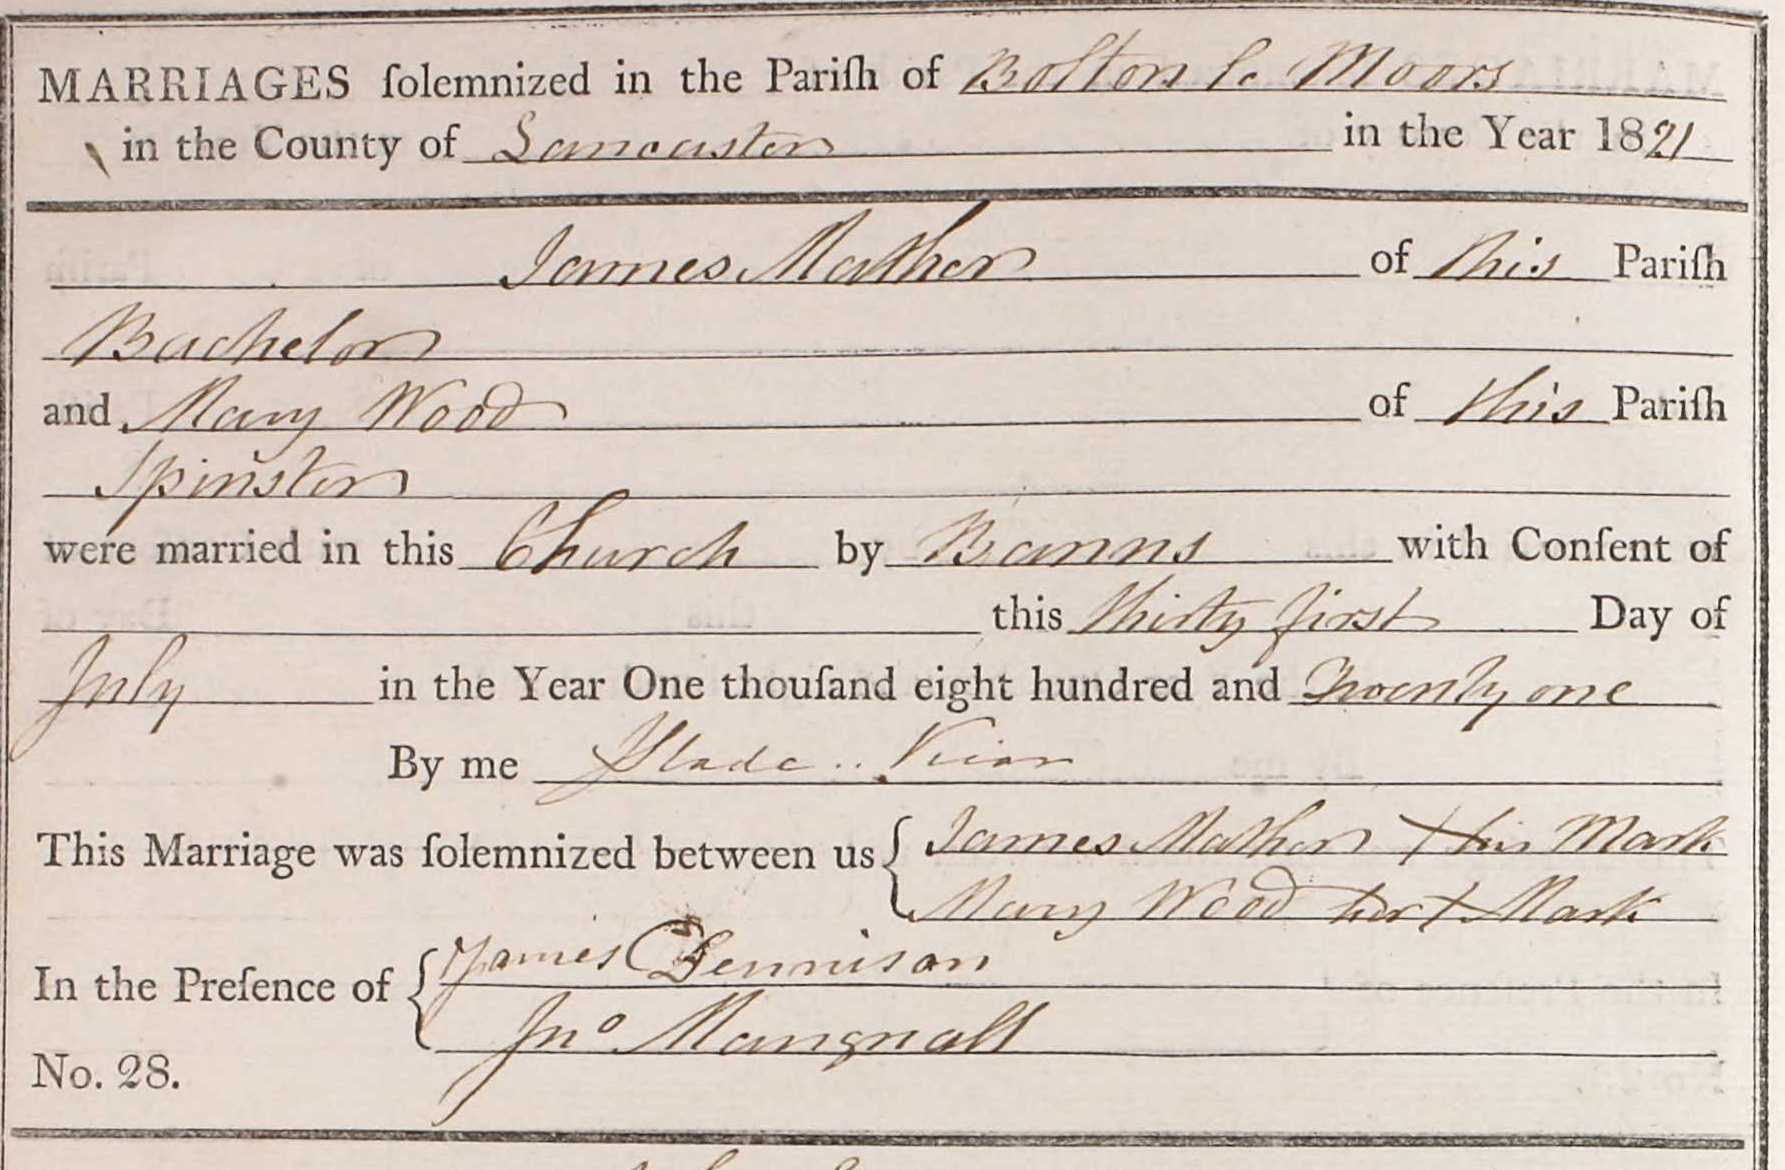 MARRIAGES ſolemnized in the Pariſh of Bolton le Moors
in the County of Lancaster in the Year 1821
James Mather of this Pariſh
Bachelor
and Mary Wood of this Pariſh
Spinster
were married in this Church by Banns with Conſent of
this thirty first Day of
July in the Year One thouſand eight hundred and Twenty one
By me Slade .. Vicar
This Marriage was ſolemnized between us { James Mather X his Mark
Mary Wood her X Mark
In the Preſence of { James Dennison
Jno Mangnall
No. 28.